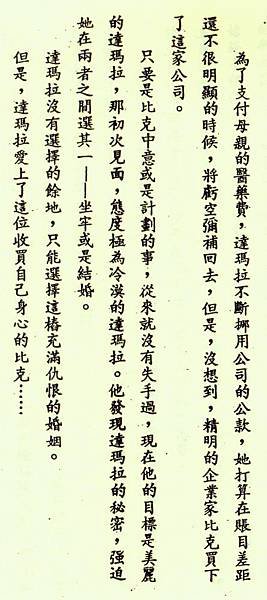 為了支付母親的醫藥費，達瑪拉不斷挪用公司的公款，她打算在賬目差距
還不很明顯的時候，將虧空彌補回去，但是，沒想到，精明的企業家比克買下
了這家公司。
只要是比克中意或是計劃的事，從來就沒有失手過，現在他的目標是美麗
的達瑪拉，那初次見面，態度極為冷漠的達瑪拉。他發現達瑪拉的秘密，強迫
她在兩者之間選其一——坐牢或是結婚。
達瑪拉沒有選擇的餘地，只能選擇這樁充滿仇恨的婚姻。
但是，達瑪拉愛上了這位收買自己身心的比克……